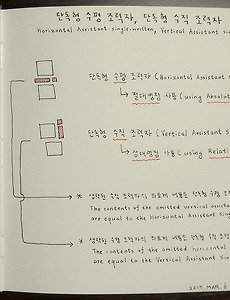 단독형 수평 조력자, 단독형 수직 조력자
Horizontal Assistant single-written, Vertical Assistant sin
단독형 수평 조력자 (Horizontal Assistant s
절대명점 사용 (using Absolut
단독형 수직 조력자 (Vertical Assistant S
상대명점 사용 (using Relati
* 생략된 수직 조력자의 내용은 단독형 수평 조
The contents of the omitted vertical assistan
are equal to the Horizontal Assistant Sing
* 생략된 수평 조력자의 내용은 단독형 수직 조
The contents of the omitted horizontal
are equal to the Vertical Assistant Sin
2019. MAR 6